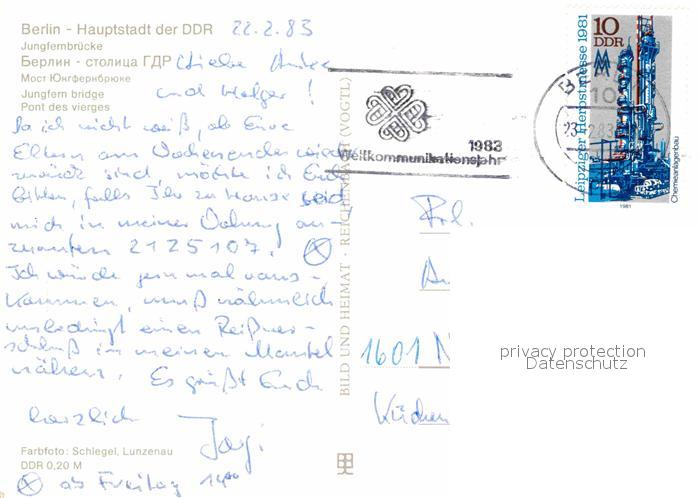 Berlin - Hauptstadt der DDR 22.2.83
Jungfernbrücke
Берлин - столица ГДР Liebe
Мост Юнгфернбрюке
Jungfern bridge und Holger!
Pont des vierges
Da ich nicht weiß, ob Eure
Eltern am Wochenende wieder
zurück sind, möchte ich Euch
bitten, falls Ihr zu Hause seid
mich in meiner Wohnung an-
zurufen 2125107. ⊗
Ich würde gern mal vorbei-
kommen, muß nämlich
unbedingt einen Reißver-
schluß in meinen Mantel
nähen. Es grüßt Euch
herzlich
Farbfoto: Schlegel, Lunzenau
DDR 0,20 M
⊗ ab Freitag 14⁰⁰
BILD UND HEIMAT · REICHENBACH (VOGTL)
1983
Weltkommunikationsjahr
Leipziger Herbstmesse 1981
10
DDR
Chemieanlagenbau
1981
Frl.
1601 N
privacy protection
Datenschutz